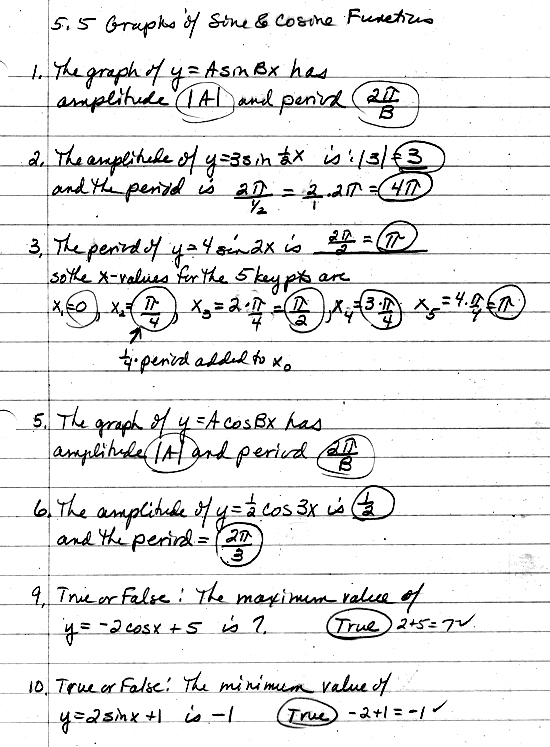 5.5 Graphs of Sine & Cosine Functions
1. The graph of y = A sin Bx has
amplitude |A| and period 2π/B
2. The amplitude of y = 3 sin ½x is: |3| = 3
and the period is 2π/½ = 2/1 · 2π = 4π
3. The period of y = 4 sin 2x is 2π/2 = π
so the x-values for the 5 key pts are
x₁ = 0, x₂ = π/4, x₃ = 2·π/4 = π/2, x₄ = 3·π/4, x₅ = 4·π/4 = π
¼·period added to x₀
5. The graph of y = A cos Bx has
amplitude |A| and period 2π/B
6. The amplitude of y = ½ cos 3x is ½
and the period = 2π/3
9. True or False: The maximum value of
y = -2cosx + 5 is 7. True 2+5=7✓
10. True or False: The minimum value of
y = 2sinx + 1 is -1 True -2+1 = -1 ✓